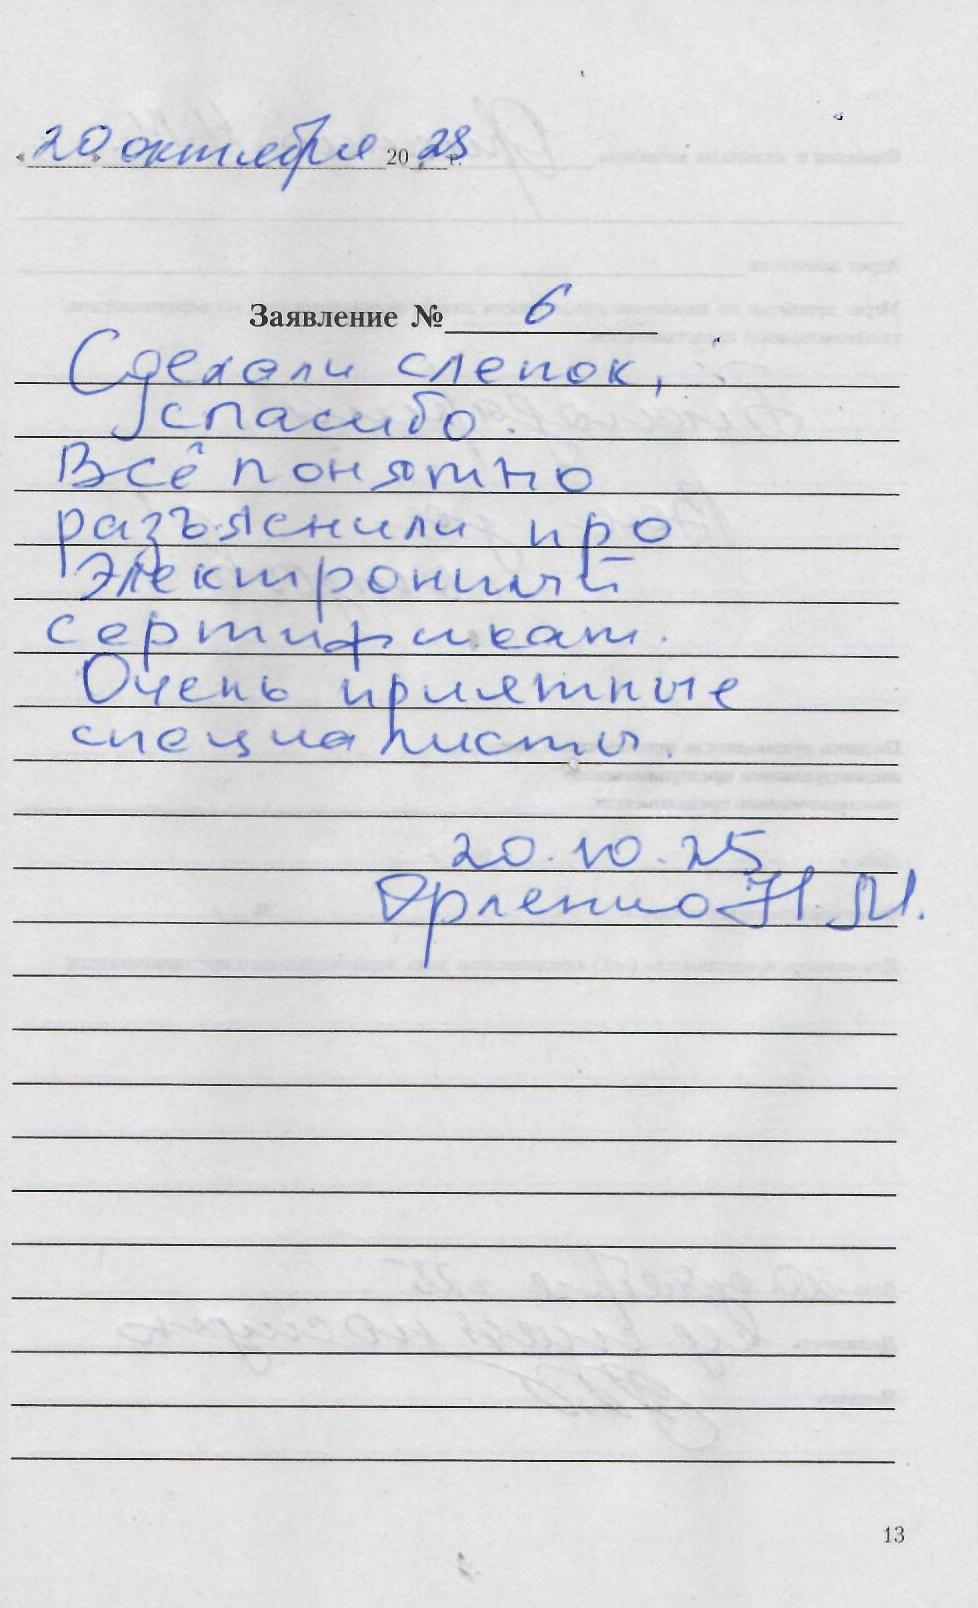 «20» октября 2025 г.
Заявление № 6
Сделали слепок,
спасибо.
Всё понятно
разъяснили про
электронный
сертификат.
Очень приятные
специалисты.
20.10.25
Н.М.
13